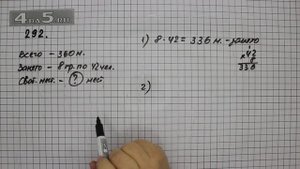 4 АВ 5.RU
292.
Всего - 360 м.
Занято - 8 гр. по 42 чел.
Своб. мест. - ? мест
1) 8 · 42 = 336 м. - занято
× 42
8
336
2)